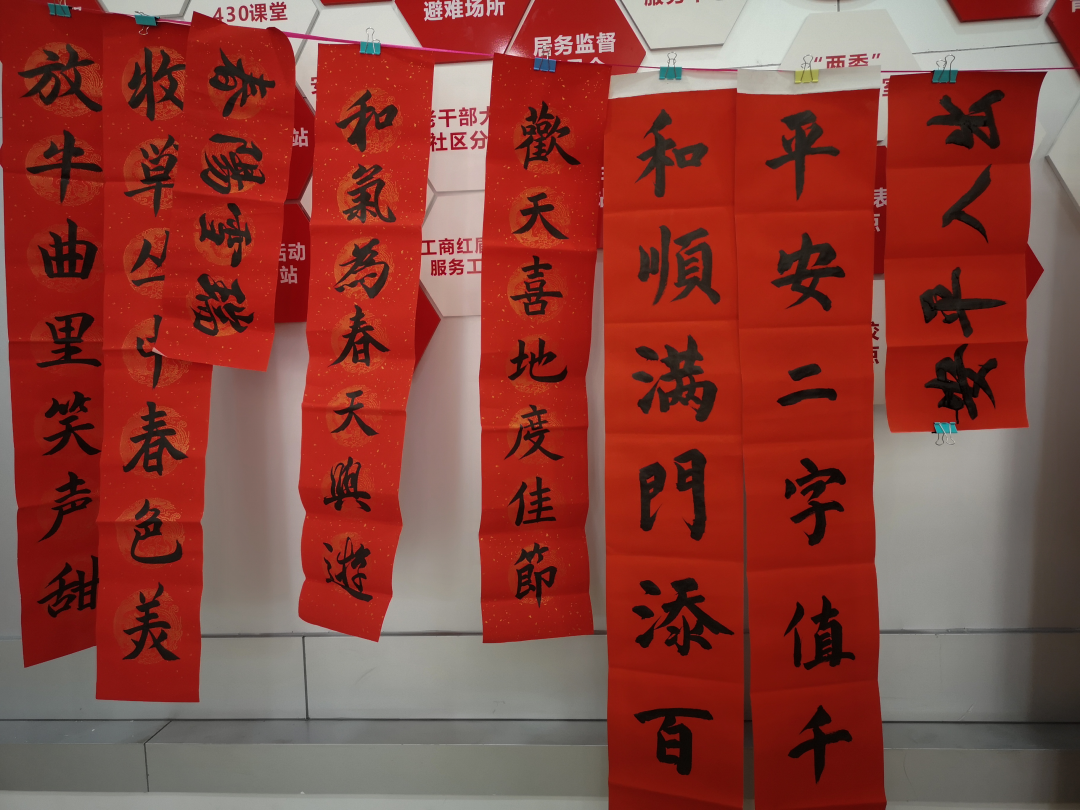 放牛曲里笑声甜
收草丛中春色美
春陽雪瑞
和氣為春天與遊
歡天喜地度佳節
和順满門添百
平安二字值千
人
430课堂
避难场所
居务监督
“两委”
老干部大
社区分
工商红盾
服务工
站
活动
站